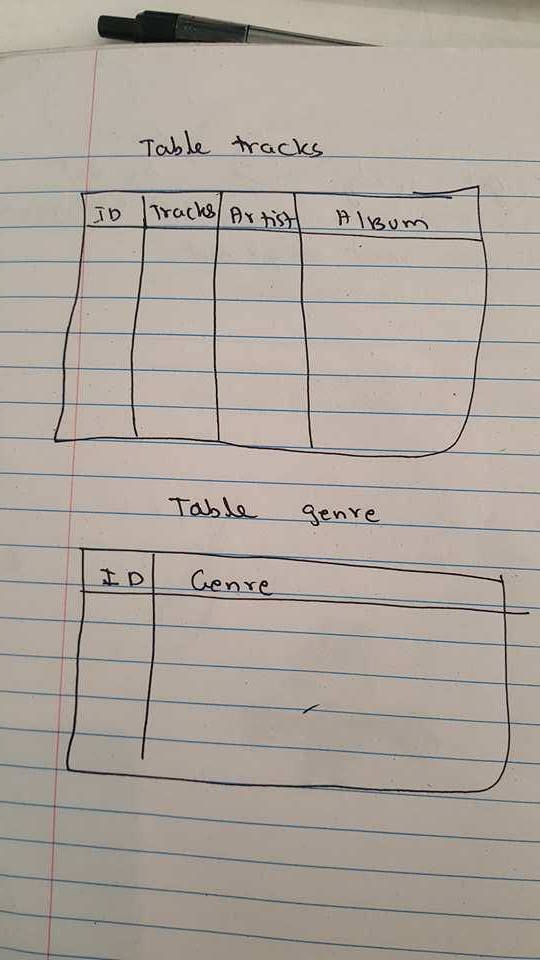 Table tracks
ID Tracks Artist Album
Table genre
ID Genre